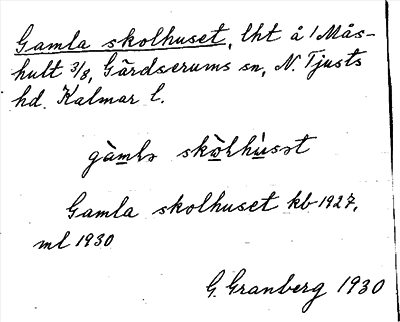 Gamla skolhuset, lht å 1 Mås-
hult 3/8, Gärdserums sn, N. Tjusts
hd. Kalmar l.
gàmlə skòlhùsət
Gamla skolhuset kb 1927,
ml 1930
G. Granberg 1930